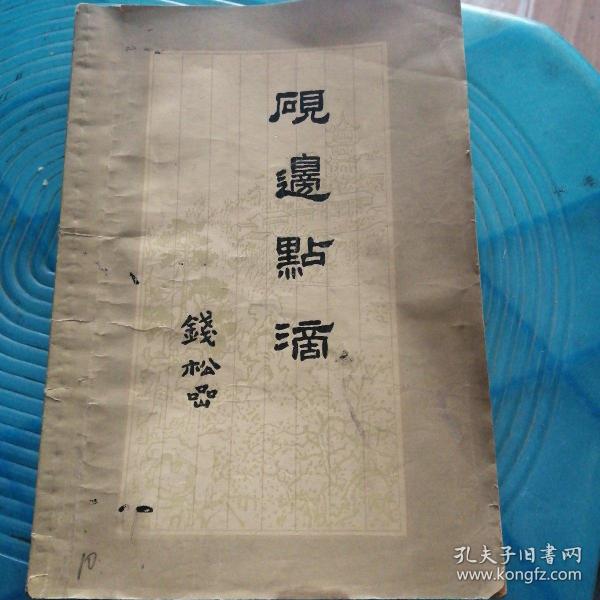 硯邊點滴
錢松嵒
10.
孔夫子旧書网
www.kongfz.com